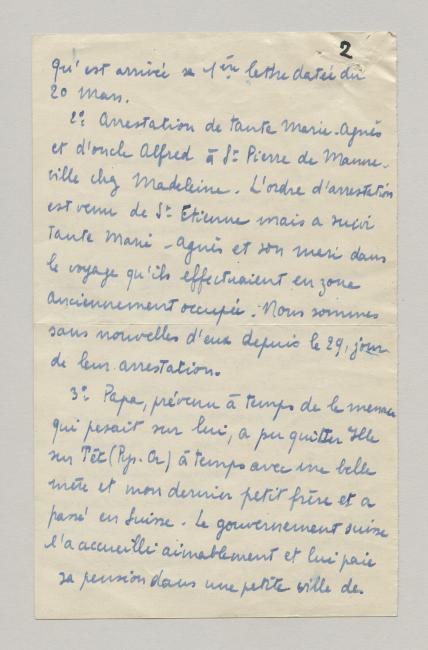 2
qu'est arrivée sa 1ère lettre datée du
20 Mars.
2° Arrestation de tante Marie-Agnès
et d'oncle Alfred à St Pierre de Manne-
ville chez Madeleine. L'ordre d'arrestation
est venu de St Etienne mais a suivi
tante Marie-Agnès et son mari dans
le voyage qu'ils effectuaient en zone
anciennement occupée. Nous sommes
sans nouvelles d'eux depuis le 29, jour
de leur arrestation.
3° Papa, prévenu à temps de le menace
qui pesait sur lui, a pu quitter Ille
sur Têt (Pyr. Or) à temps avec une belle
mère et mon dernier petit frère et a
passé en Suisse. Le gouvernement suisse
l'a accueilli aimablement et lui paie
sa pension dans une petite ville de